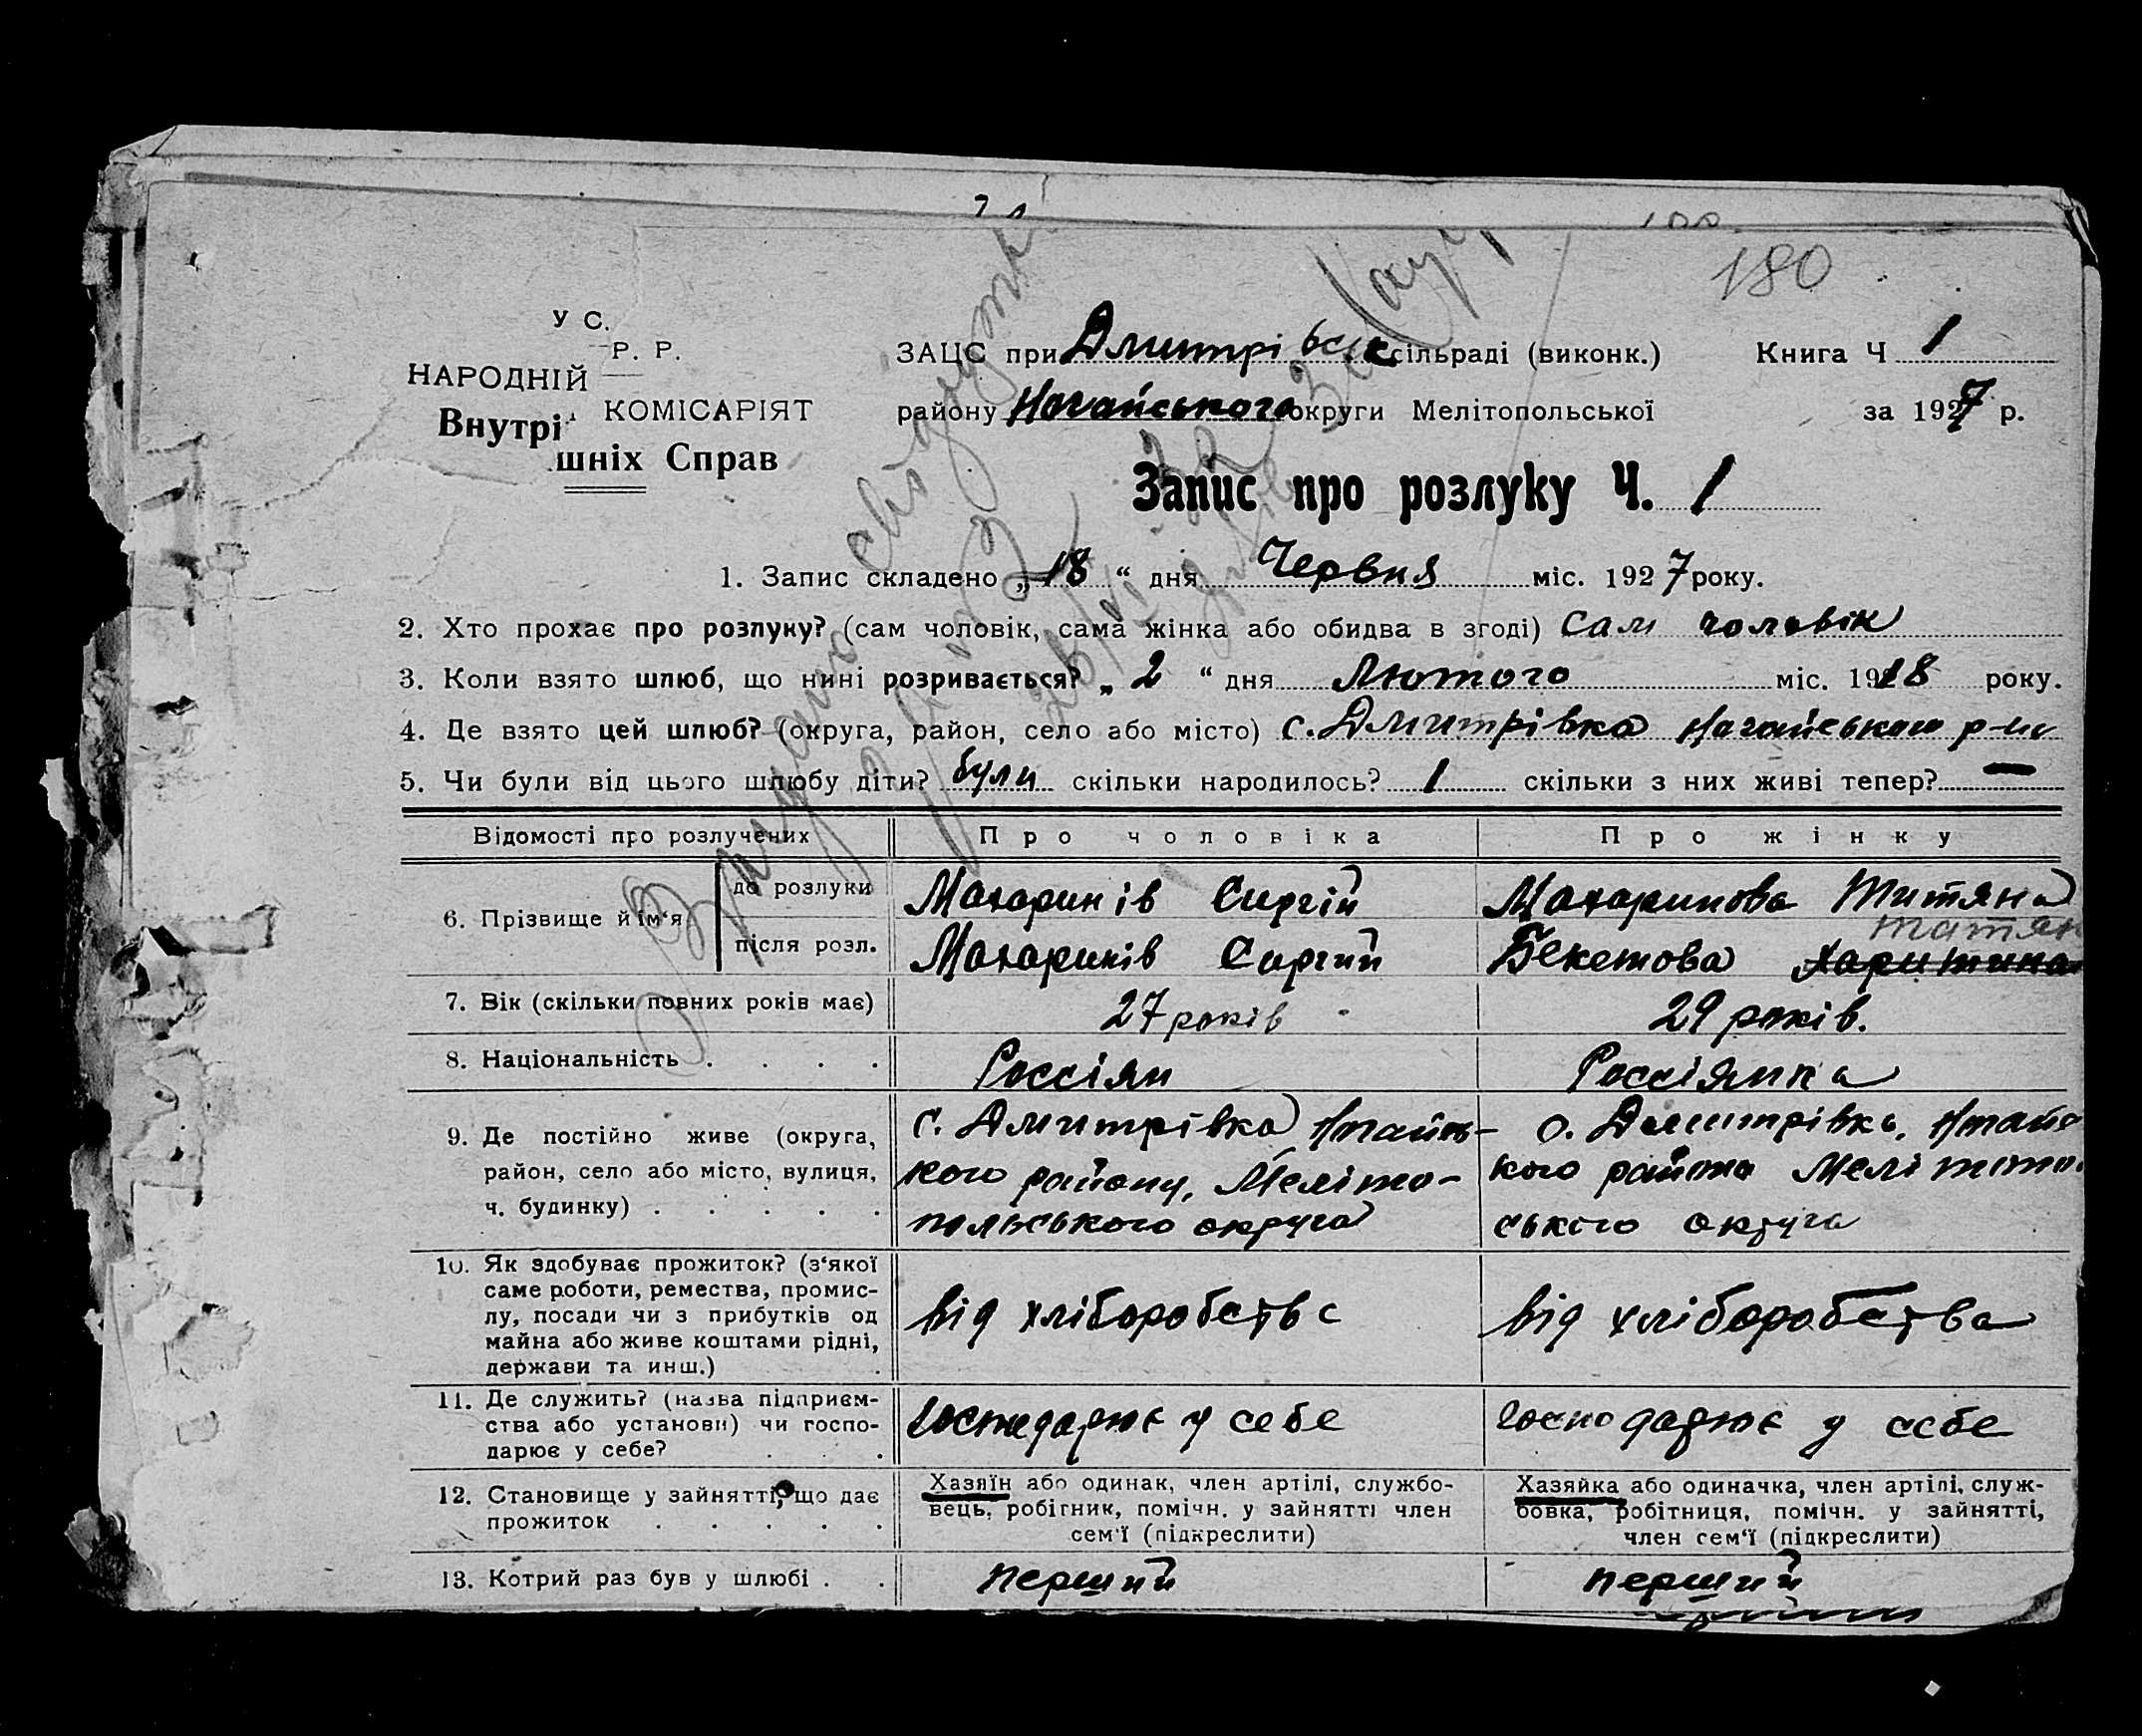 180
У С.
Р. Р.
НАРОДНІЙ
КОМІСАРІЯТ
Внутрі-
шніх Справ
ЗАЦС при Дмитрівськ сільраді (виконк.) Книга Ч 1
району Ногайського округи Мелітопольської за 1927 р.
Запис про розлуку Ч. 1
1. Запис складено „18“ дня Червня міс. 1927 року.
2. Хто прохає про розлуку? (сам чоловік, сама жінка або обидва в згоді) Сам чоловік
3. Коли взято шлюб, що нині розривається? „2“ дня Лютого міс. 1918 року.
4. Де взято цей шлюб? (округа, район, село або місто) с. Дмитрівка Ногайського р-ну
5. Чи були від цього шлюбу діти? були скільки народилось? 1 скільки з них живі тепер? —
Відомості про розлучених Про чоловіка Про жінку
6. Прізвище й ім‘я до розлуки Махаринів Сиргій Махаринова Титяна
Татян
після розл. Махаринів Сиргий Бекетова Харитина
7. Вік (скільки повних років має) 27 років 29 років.
8. Національність . . . . Россіян Россіянка
9. Де постійно живе (округа,
район, село або місто, вулиця,
ч. будинку) . . . . .
с. Дмитрівка Ногайсь-
кого району, Меліто-
польського округа
с. Дмитрівка, Ногайс
кого района Мелітопо
ського округа
10. Як здобуває прожиток? (з‘якої
саме роботи, ремества, промис-
лу, посади чи з прибутків од
майна або живе коштами рідні,
держави та инш.) .
від хліборобства
від хліборобства
11. Де служить? (назва підприєм-
ства або установи) чи госпо-
дарює у себе? . .
господарює у себе
господарює у себе
12. Становище у зайнятті, що дає
прожиток . . . . .
Хазяїн або одинак, член артілі, службо-
вець, робітник, помічн. у зайнятті член
сем‘ї (підкреслити)
Хазяйка або одиначка, член артілі, служ-
бовка, робітниця, помічн. у зайнятті,
член сем‘ї (підкреслити)
13. Котрий раз був у шлюбі . . перший перший